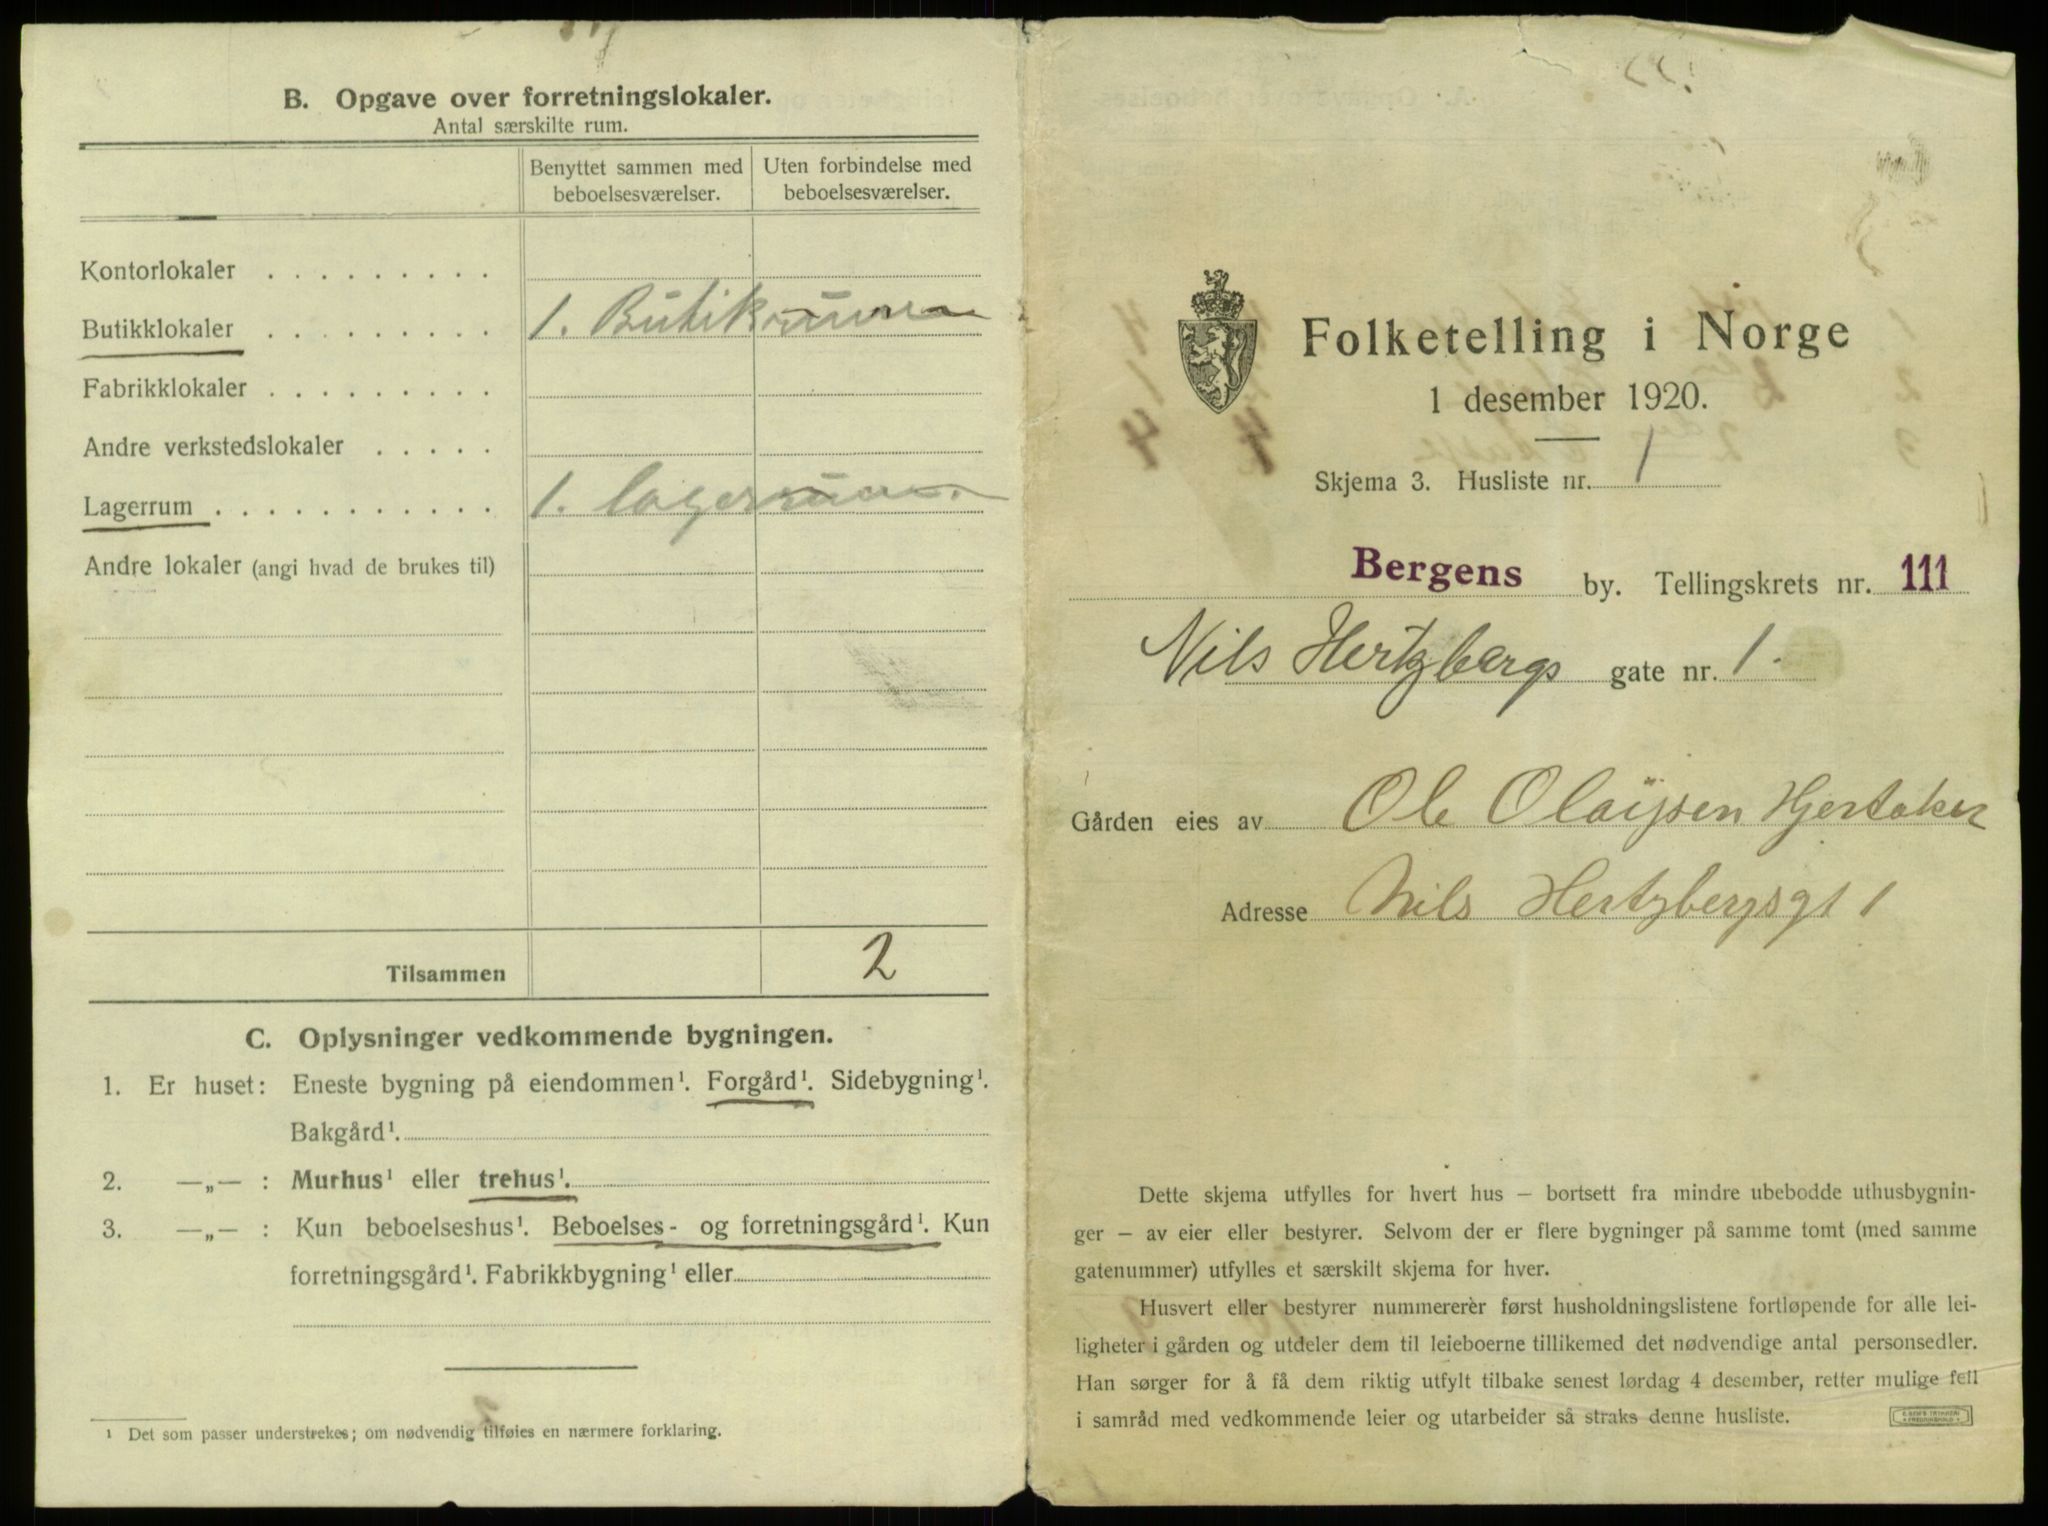 B. Opgave over forretningslokaler.
Antal særskilte rum.
Benyttet sammen med beboelsesværelser.
Uten forbindelse med beboelsesværelser.
Kontorlokaler
Butikklokaler 1. Butikrum
Fabrikklokaler
Andre verkstedslokaler
Lagerrum 1. lagerrum.
Andre lokaler (angi hvad de brukes til)
Tilsammen 2
C. Oplysninger vedkommende bygningen.
1. Er huset: Eneste bygning på eiendommen¹. Forgård¹. Sidebygning¹.
Bakgård¹.
2. —„— : Murhus¹ eller trehus¹.
3. —„— : Kun beboelseshus¹. Beboelses- og forretningsgård¹. Kun
forretningsgård¹. Fabrikkbygning¹ eller
¹ Det som passer understrekes; om nødvendig tilføies en nærmere forklaring.
Folketelling i Norge
1 desember 1920.
Skjema 3. Husliste nr. 1
Bergens by. Tellingskrets nr. 111
Nils Hertzbergs gate nr. 1.
Gården eies av Ole Olaijsen Hjertaker
Adresse Nils Hertzbergsgt 1
Dette skjema utfylles for hvert hus – bortsett fra mindre ubebodde uthusbygnin-
ger – av eier eller bestyrer. Selvom der er flere bygninger på samme tomt (med samme
gatenummer) utfylles et særskilt skjema for hver.
Husvert eller bestyrer nummererer først husholdningslistene fortløpende for alle lei-
ligheter i gården og utdeler dem til leieboerne tillikemed det nødvendige antal personsedler.
Han sørger for å få dem riktig utfylt tilbake senest lørdag 4 desember, retter mulige feil
i samråd med vedkommende leier og utarbeider så straks denne husliste.